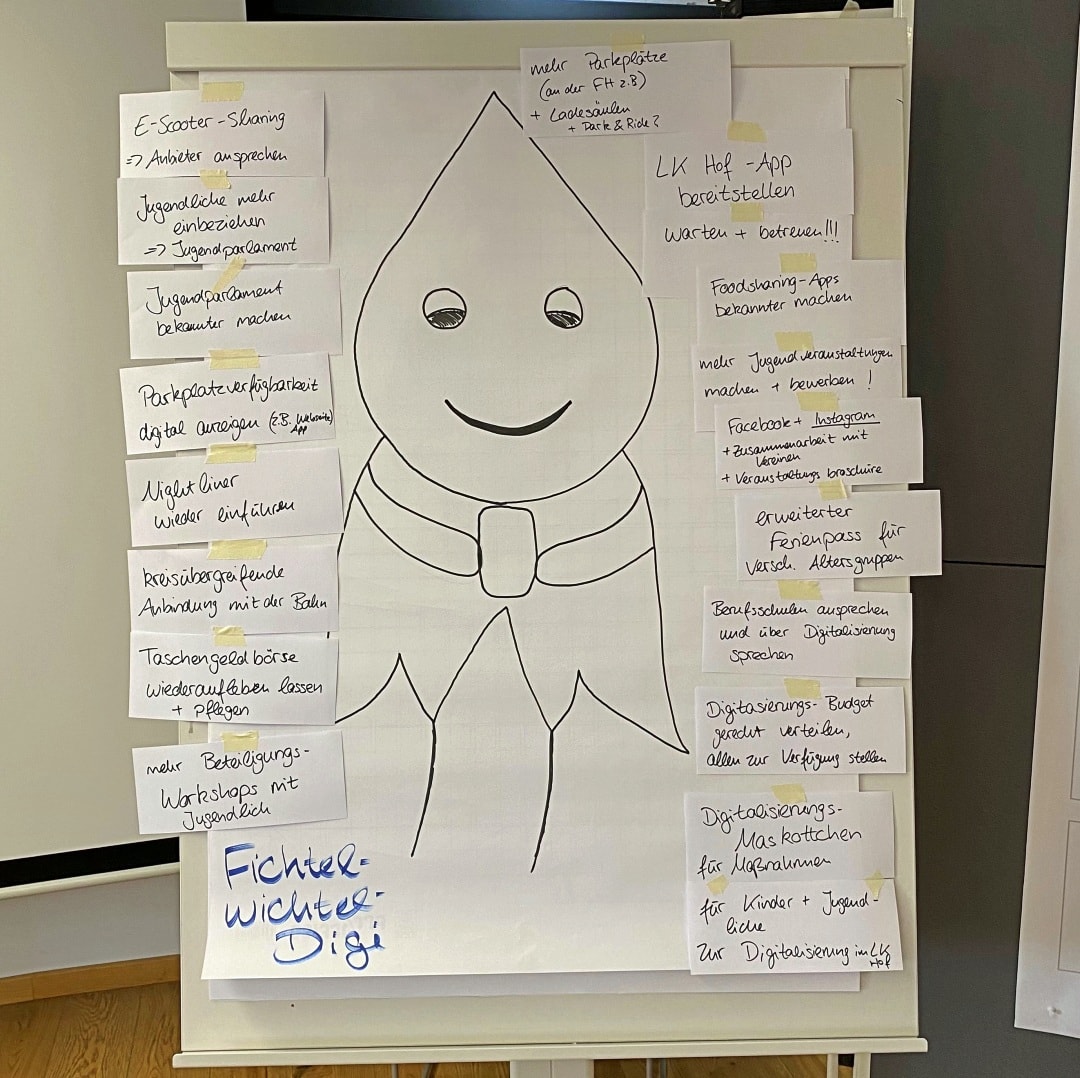 E-Scooter-Sharing
=> Anbieter ansprechen
Jugendliche mehr
einbeziehen
=> Jugendparlament
Jugendparlament
bekannter machen
Parkplatzverfügbarkeit
digital anzeigen (z.B. Webseite/
App)
Nightliner
wieder einführen
kreisübergreifende
Anbindung mit der Bahn
Taschengeldbörse
wiederaufleben lassen
+ pflegen
mehr Beteiligungs-
Workshops mit
Jugendlich
Fichtel-
wichtel-
Digi
mehr Parkplätze
(an der FH z.B)
+ Ladesäulen
+ Park & Ride?
LK Hof -App
bereitstellen
warten + betreuen!!!
Foodsharing-Apps
bekannter machen
mehr Jugendveranstaltungen
machen + bewerben!
Facebook + Instagram
+ Zusammenarbeit mit
Vereinen
+ Veranstaltungs broschüre
erweiterter
Ferienpass für
versch. Altersgruppen
Berufsschulen ansprechen
und über Digitalisierung
sprechen
Digitasierungs-Budget
gerecht verteilen,
allen zur Verfügung stellen
Digitalisierungs-
Maskottchen
für Maßnahmen
für Kinder + Jugend-
liche
zur Digitalisierung im LK
Hof